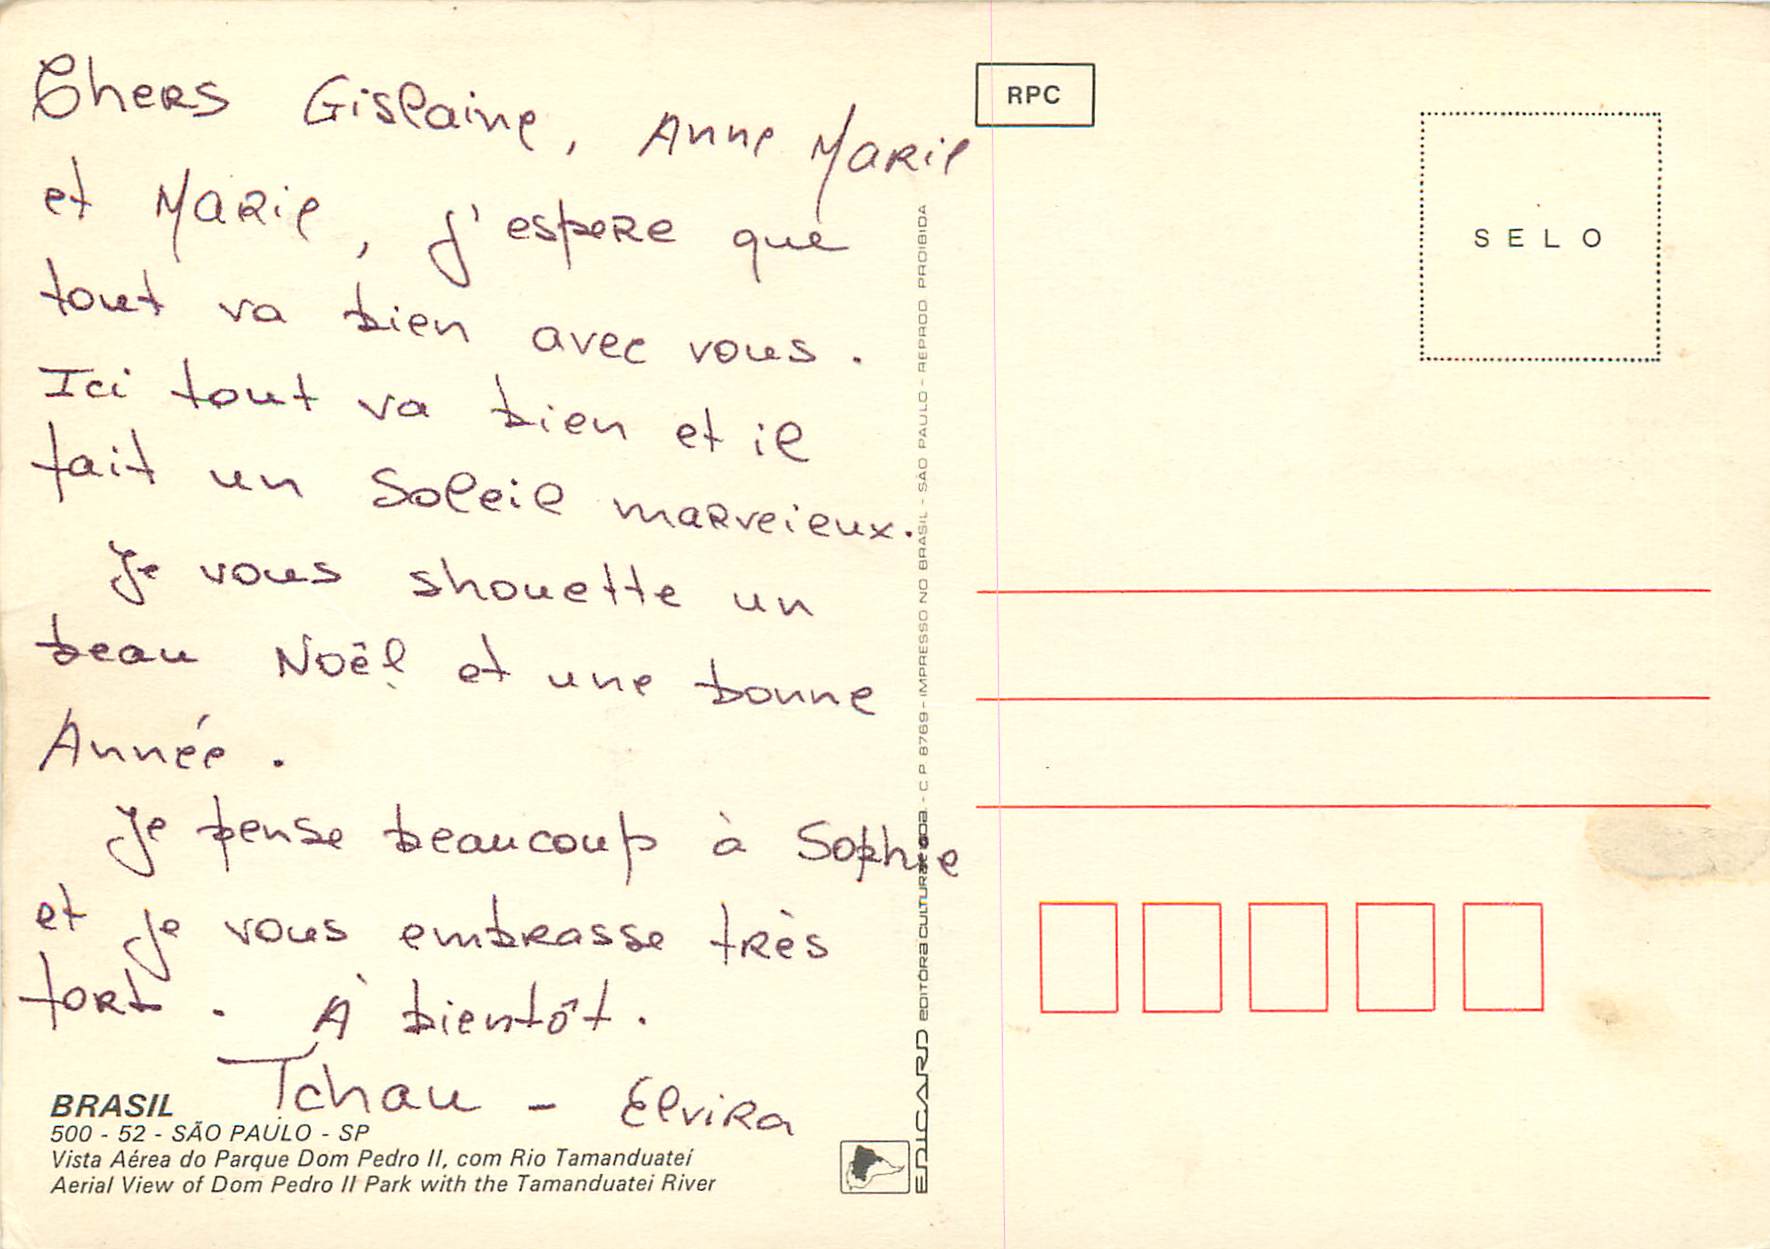 Chers Gislaine, Anne Marie
et Marie, j'espere que
tout va bien avec vous.
Ici tout va bien et il
fait un Soleil marveieux.
Je vous shouette un
beau Noël et une bonne
Année.
Je pense beaucoup à Sophie
et je vous embrasse très
fort. À bientôt.
Tchau - Elvira
BRASIL
500 - 52 - SÃO PAULO - SP
Vista Aérea do Parque Dom Pedro II, com Rio Tamanduateí
Aerial View of Dom Pedro II Park with the Tamanduatei River
EDICARD EDITÔRA CULTURAL - C P 8769 - IMPRESSO NO BRASIL - SÃO PAULO - REPROD PROIBIDA
RPC
SELO